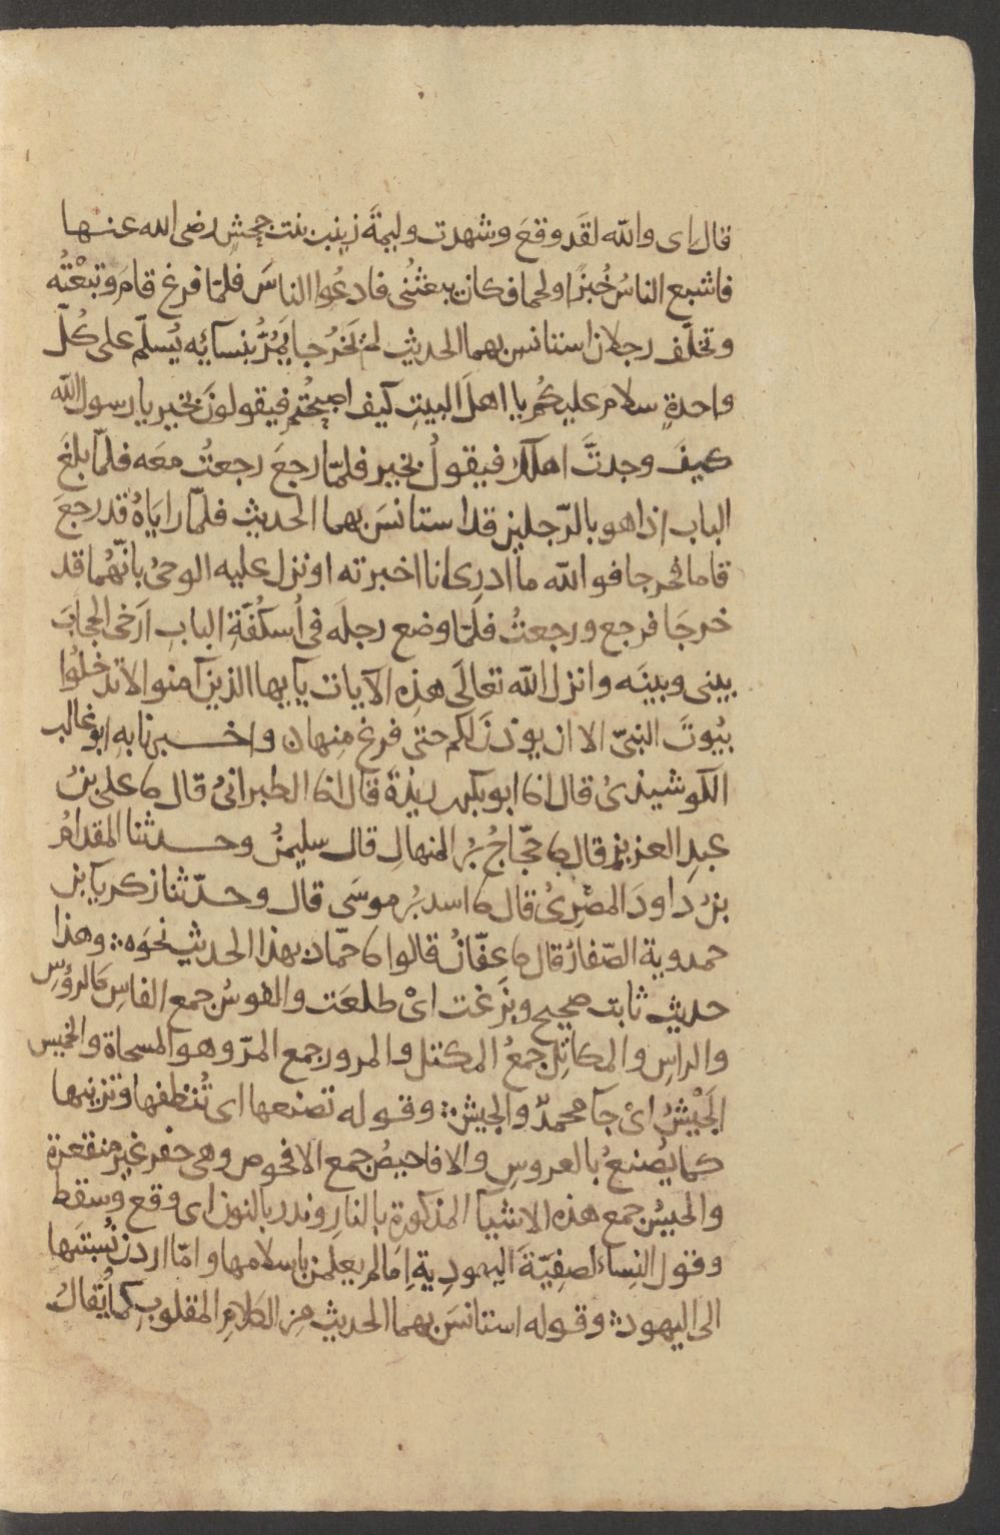 قال اى والله لقَد وقعَ وشهدت وليمةَ زينب بنت جحشٍ رضى الله عنها
فاشبع الناسُ خُبزًا ولحما فكان يبعثنى فادعُوا الناسَ فلمّا فرغ قامَ وتبعْتُه
وتخلّف رجلان استانس بهما الحديث لمْ يَخرُجا يَمُرُّ بنسآئِه يُسلّم على كُلّ
واحدةٍ سلام عليكُم يا اهلَ البيتِ كيف اصبحْتُم فيقولونَ بخير يا رسول الله
كيفَ وجدتَّ اهلكَ فيقولُ بخير فلمّا رجعَ رجعتُ معَه فلمّا بلغَ
الباب اذا هو بالرّجلين قد استانسَ بهما الحديث فلمّا رايَاهُ قد رجعَ
قاما فخرجا فوالله ما ادرى انا اخبرته او نزل عليه الوحىُ بانّهما قد
خرجَا فرجع ورجعتُ فلمّا وضع رجلَه فى اُسكُفَّةِ البابِ ارَخى الحجابَ
بينى وبينَه وانزل الله تعالَى هذِه الآيات يآيها الذين آمنوا لا تدخلُوا
بيُوتَ النبىّ الا ان يوذنَ لكم حتى فرغ مِنها ن واخبرنا بِه ابو غالب
الكوشيذىُ قال انا ابو بكر بن ريذةَ قال انا الطبرانىُ قال نا على بنُ
عبدِ العزيز قال نا حجّاجُ بنُ المنهالِ قال سليمنُ وحدثنا المقدامُ
بنُ داودَ المصْرِىُ قال نا اسد بنُ موسَى قال وحدّثنا زكريآ بن
حمدوية الصّفارُ قال نا عفّانُ قالوا نا حمّاد بهذا الحديث نحوَه ؞ وهذا
حديث ثابت صحيح وبزَغت اىْ طلعَت والفوسُ جمع الفاسِ كالرؤُسِ
والراسِ والمكاتِل جمعُ المكتل والمرور جمع المرّ وهو المسحاة والخميس
الجَيْشُ اىْ جآ محمدٌ والجيش ؞ وقوله تصنعها اى تُنظفها وتزينها
كما يُصْنعُ بالعروسِ والافاحيصُ جمع الافحوص وهى حفر غير منقعرة
والحيسُ جمع هذه الاشيآ المذكورة بالنارِ وندر بالنون اى وقع وسقط
وقول النِساء لصفِيّةَ اليهودِية اِمَا لم يعلمن باسلامها وامّا اردن نُسبتَها
الى اليهود ؞ وقوله استانسَ بهما الحديث من الكلامِ المقلوبِ كما يُقالُ